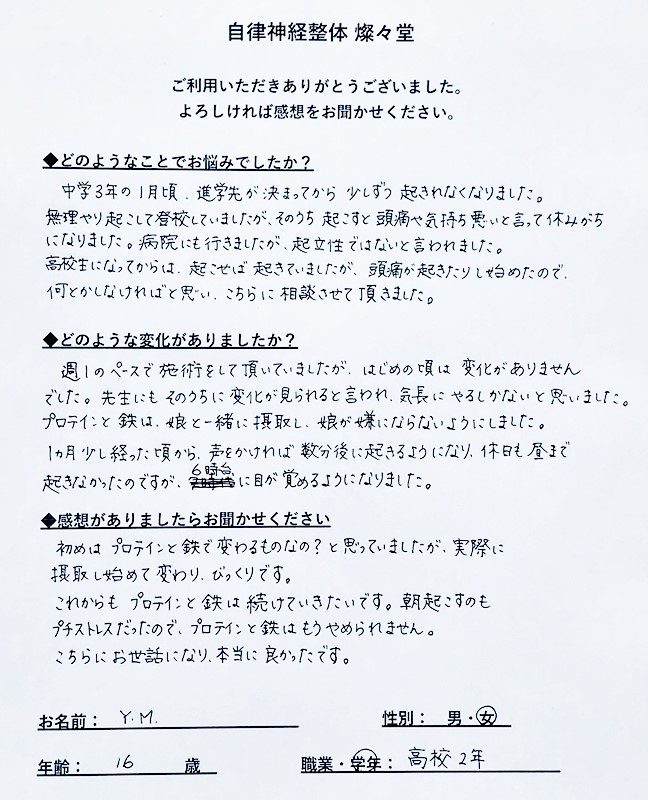 自律神経整体 燦々堂
ご利用いただきありがとうございました。
よろしければ感想をお聞かせください。
◆どのようなことでお悩みでしたか？
中学3年の1月頃、進学先が決まってから少しずつ起きれなくなりました。
無理やり起こして登校していましたが、そのうち起こすと頭痛や気持ち悪いと言って休みがち
になりました。病院にも行きましたが、起立性ではないと言われました。
高校生になってからは、起こせば起きていましたが、頭痛が起きたりし始めたので、
何とかしなければと思い、こちらに相談させて頂きました。
◆どのような変化がありましたか？
週1のペースで施術をして頂いていましたが、はじめの頃は変化がありません
でした。先生にもそのうちに変化が見られると言われ、気長にやるしかないと思いました。
プロテインと鉄は、娘と一緒に摂取し、娘が嫌にならないようにしました。
1ヵ月少し経った頃から、声をかければ数分後に起きるようになり、休日も昼まで
起きなかったのですが、6時台に目が覚めるようになりました。
◆感想がありましたらお聞かせください
初めはプロテインと鉄で変わるものなの？と思っていましたが、実際に
摂取し始めて変わり、びっくりです。
これからもプロテインと鉄は続けていきたいです。朝起こすのも
プチストレスだったので、プロテインと鉄はもうやめられません。
こちらにお世話になり、本当に良かったです。
お名前： Y.M. 性別： 男・女
年齢： 16 歳 職業・学年： 高校2年